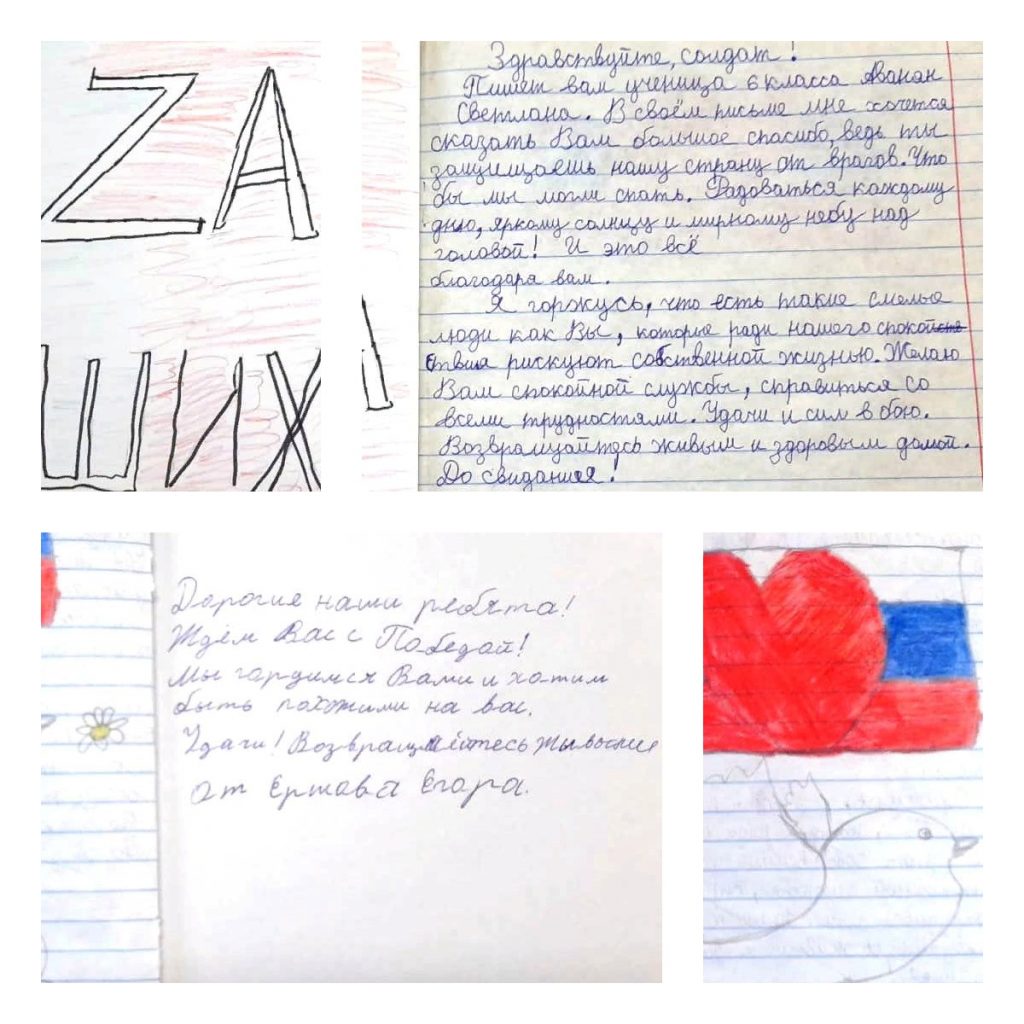 ZA
ШИХ
Здравствуйте, солдат!
Пишет вам ученица 6 класса Аванан
Светлана. В своём письме мне хочется
сказать Вам большое спасибо, ведь ты
защищаешь нашу страну от врагов. Что
бы мы могли спать. Радоваться каждому
дню, яркому солнцу и мирному небу над
головой! И это всё
благодаря вам.
Я горжусь, что есть такие смелые
люди как Вы, которые ради нашего спокой
ствия рискуют собственной жизнью. Желаю
Вам спокойной службы, справиться со
всеми трудностями. Удачи и сил в бою.
Возвращайтесь живым и здоровым домой.
До свидания!
Дорогие наши ребята!
Ждём Вас с Победой!
Мы гордимся Вами и хотим
быть похожими на вас.
Удачи! Возвращайтесь живыми
от Ершова Егора.